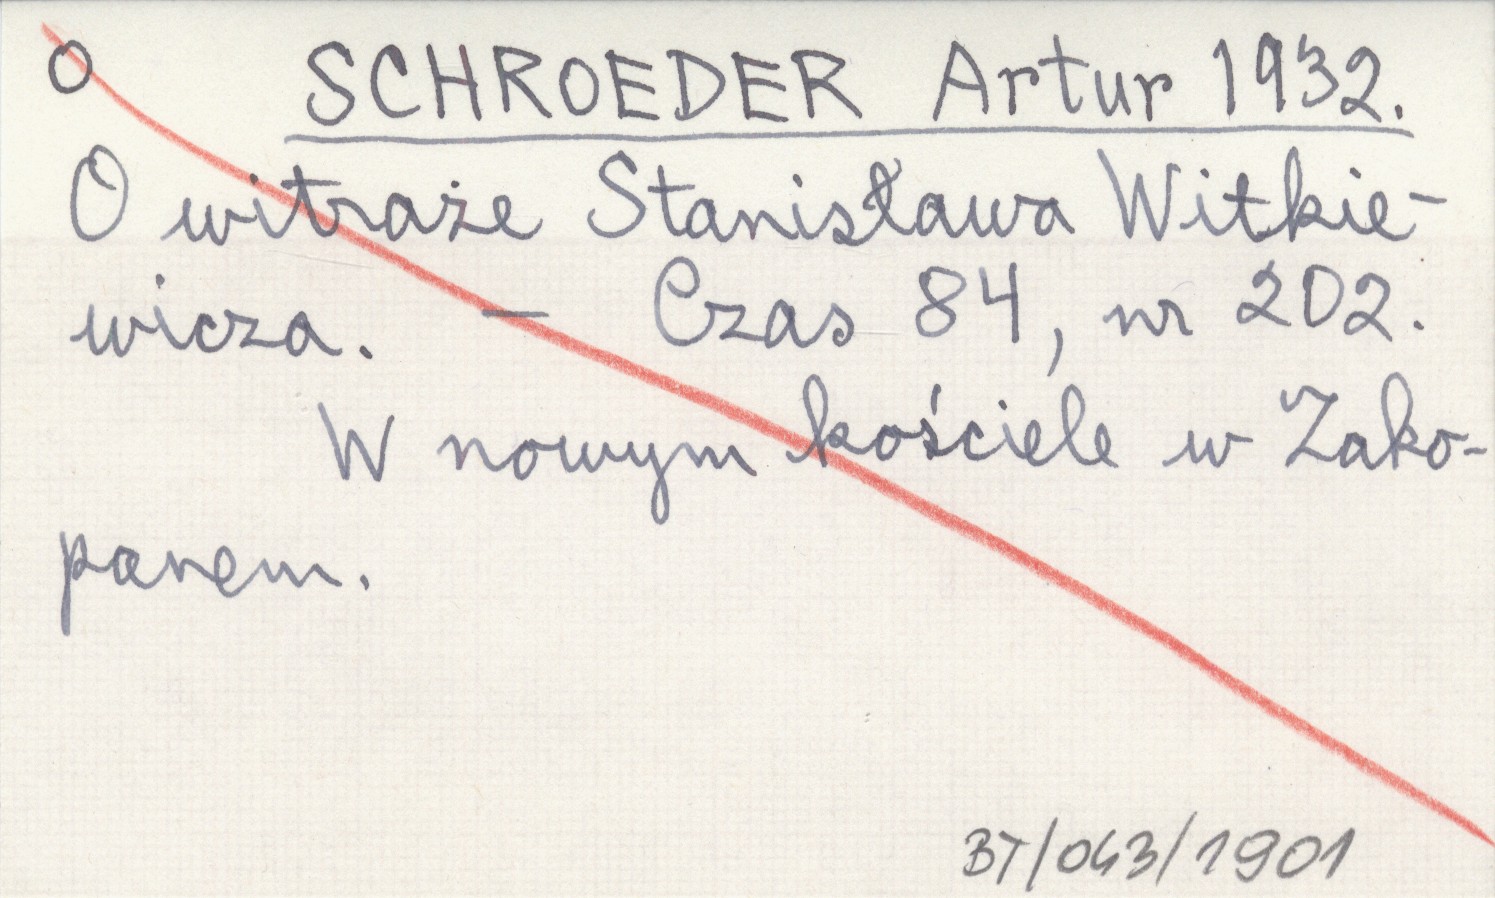 O SCHROEDER Artur 1932.
O witraże Stanisława Witkie-
wicza. — Czas 84, nr 202.
W nowym kościele w Zako-
panem.
BT/043/1901